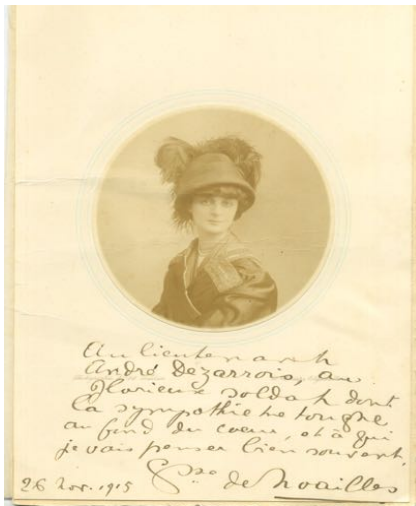 Au lieutenant
André Dezarrois, au
glorieux soldat dont
la sympathie me touche
au fond du coeur, et à qui
je vais penser bien souvent.
Csse de Noailles
26 Nov. 1915